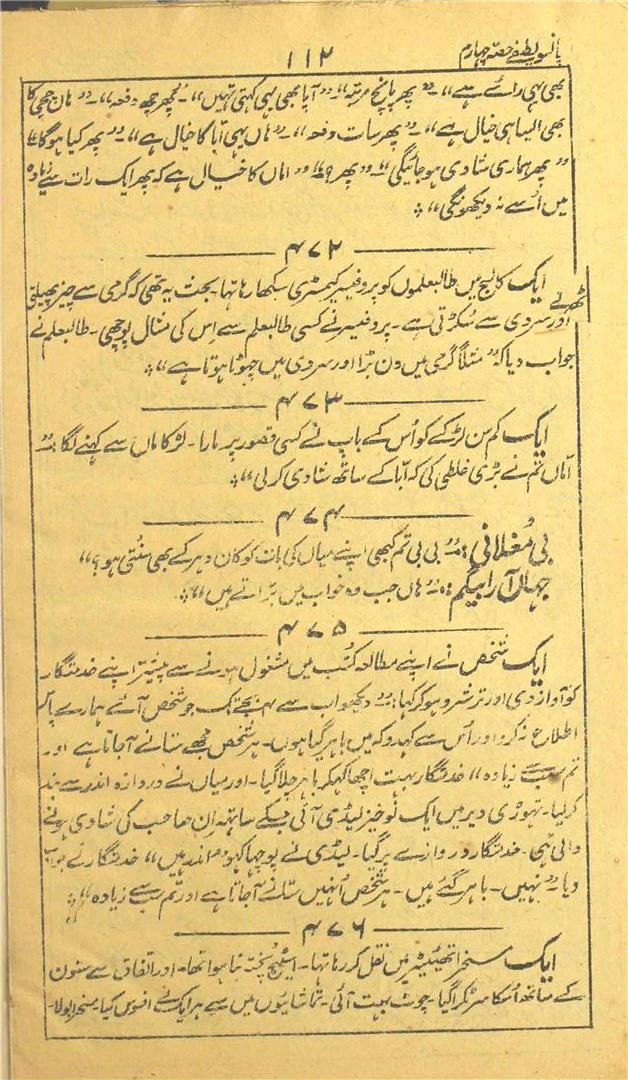 پانسو لطیفے حصہ چہارم ۱۱۲
بھی یہی رائے ہے“۔ ”پھر پانچ مرتبہ“۔ ”آپا بھی یہی کہتی تہیں“۔ ”پھر چھ دفعہ“۔ ”ہاں چچی کا
بھی ایسا ہی خیال ہے“۔ ”پھر سات دفعہ“۔ ”ہاں یہی آبا کا خیال ہے“۔ ”پھر کیا ہوگا“
”پھر ہماری شادی ہو جائیگی“۔ ”پھر؟“ ”اماں کا خیال ہے کہ پھر ایک رات سے زیادہ
میں اُسے نہ دیکھونگی“
۴۷۲
ایک کالج میں طالبعلموں کو پروفیسر کیمسٹری سکھا رہا تہا۔ بحث یہ تھی کہ گرمی سے چیز پھیلتی
اور سردی سے سُکڑتی ہے۔ پروفیسر نے کسی طالبعلم سے اِس کی مثال پوچھی۔ طالبعلم نے
جواب دیا کہ ”مثلاً گرمی میں دن بڑا اور سردی میں چہوٹا ہوتا ہے“
۴۷۳
ایک کم سن لڑکے کو اُس کے باپ نے کسی قصور پر مارا۔ لڑکا ماں سے کہنے لگا :۔”
اماں تم نے بڑی غلطی کی کہ آبا کے ساتھ شادی کر لی“
۴۷۴
بی مُغلانی :۔”بی بی تم کبھی اپنے میاں کی بات کو کان دہر کے بھی سُنتی ہو؟“
جہاں آرا بیگم :۔”ہاں جب وہ خواب میں بڑاتے ہیں“
۴۷۵
ایک شخص نے اپنے مطالعہ کتب میں مشغول ہونے سے پیشتر اپنے خدمتگار
کو آواز دی اور ترشرو ہو کر کہا :۔”دیکھو اب سے بجے تک جو شخص آئے ہمارے پاس
اطلاع نہ کرو اور اُس سے کہدو کہ میں باہر گیا ہوں۔ ہر شخص مجھے ستانے آ جاتا ہے اور
تم سب سے زیادہ“ خدمتگار بہت اچھا کہکر باہر چلا گیا۔ اور میاں نے دروازہ اندر سے بند
کر لیا۔ تہوڑی دیر میں ایک نوخیز لیڈی آئی جسکے ساتہہ اِن صاحب کی شادی ہونے
والی تہی۔ خدمتگار دروازے پر گیا۔ لیڈی نے پوچہا کہو ”اندر ہیں“ خدمتگار نے جواب
دیا ”نہیں۔ باہر گئے ہیں۔ ہر شخص اُنہیں ستانے آ جاتا ہے اور تم سب سے زیادہ“
۴۷۶
ایک مسخرا تھیئیٹر میں نقل کر رہا تہا۔ اسٹیج پُختہ بنا ہوا تھا۔ اور اتفاق سے ستون
کے ساتھ اُسکا سر ٹکرا گیا۔ چوٹ بہت آئی۔ تماشائیوں میں سے ہر ایک نے افسوس کیا۔ مسخرا بولا۔